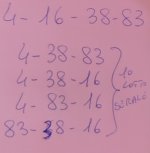 4-16-38-83
4-38-83
4-38-16
4-83-16
83-38-16
10
LOTTO
SERALE